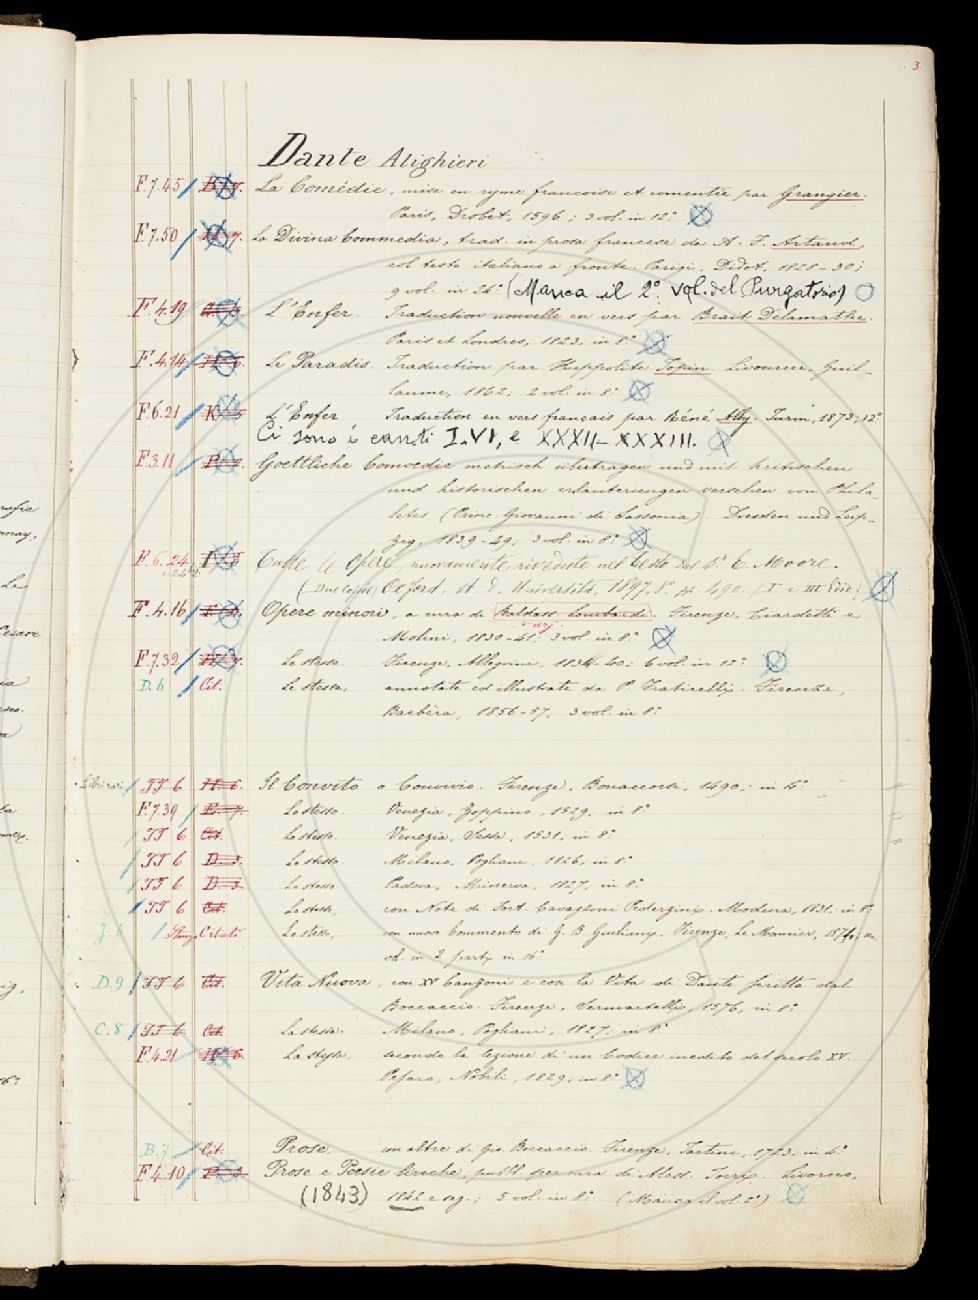 3
Dante Alighieri
F.7.45 La Comédie, mise en ryme francoise et comentée par Grangier.
Paris, Drobet, 1596; 3 vol. in 12º
F.7.50 La Divina Commedia, trad. in prosa francese da A. F. Artaud,
col testo italiano a fronte. Parigi, Didot, 1828-30;
9 vol. in 26º (Manca il 2º vol. del Purgatorio)
F.4.19 L'Enfer. Traduction nouvelle en vers par Brait Delamathe.
Paris et Londres, 1823; in 8º
F.4.14 Le Paradis. Traduction par Hyppolite Topin. Livourne, Guil-
laume, 1862; 2 vol. in 8º
F.6.21 L'Enfer Traduction en vers francais par Réné Alby. Turin, 1873; 12º
Ci sono i canti I-VI, e XXXII-XXXIII.
F.3.11 Goettliche Comoedie metrisch übertragen und mit kritischen
und historischen erläuterungen versehen von Phila-
letes (Princ. Giovanni di Sassonia) Dresden und Leip-
zig, 1839-49; 3 vol. in 8º
F.6.24 Tutte le Opere, nuovamente rivedute nel testo dal Dr. E. Moore.
(Due Copie) Oxford, 1897, 8º pp. 490. (I e III Ediz)
F.4.16 Opere minori, a cura di Baldass. Lombardi. Firenze, Ciardetti e
varj
Molini, 1830-41; 3 vol. in 8º
F.7.32 Le stesse. Firenze, Allegrini, 1834-40; 6 vol. in 12º
D.6 Cit. Le stesse, annotate ed illustrate da P. Fraticelli. Firenze,
Barbèra, 1856-57, 3 vol. in 8º
TT 6 H.6. Il Convito o Convivio. Firenze, Bonaccorsi, 1490; in 4º
F.7.39 Lo stesso. Venezia, Zoppino, 1529; in 8º
TT 6 Cit. Lo stesso. Venezia, Sessa, 1531; in 8º
TT 6 D.3. Lo stesso. Milano, Pogliani, 1826, in 8º
TT 6 D.3. Lo stesso. Padova, Minerva, 1827, in 8º
TT 6 Cit. Lo stesso, con Note di Fort. Cavazzoni Pederzini. Modena, 1831; in 8º
J.6 Stanza Citati Lo stesso, con nuovo Commento di G. B. Giuliani. Firenze, Le Monnier, 1874;
vol. in 2 parti in 16º
D.9 TT 6 Cit. Vita Nuova, con XV Canzoni e con la Vita di Dante scritta dal
Boccaccio. Firenze, Sermartelli, 1576, in 8º
C.8 TT 6 Cit. La stessa. Milano, Pogliani, 1827; in 8º
F.4.21 La stessa, secondo la lezione di un Codice inedito del secolo XV.
Pesaro, Nobili, 1829, in 8º
B.7 Cit. Prose, con altre di Gio. Boccaccio. Firenze, Tartini, 1723, in 4º
F.4.10 Prose e Poesie liriche, pubbl. per cura di Aless. Torri. Livorno,
(1843) 1842 e seg.; 5 vol. in 8º (Manca il vol. 2º)